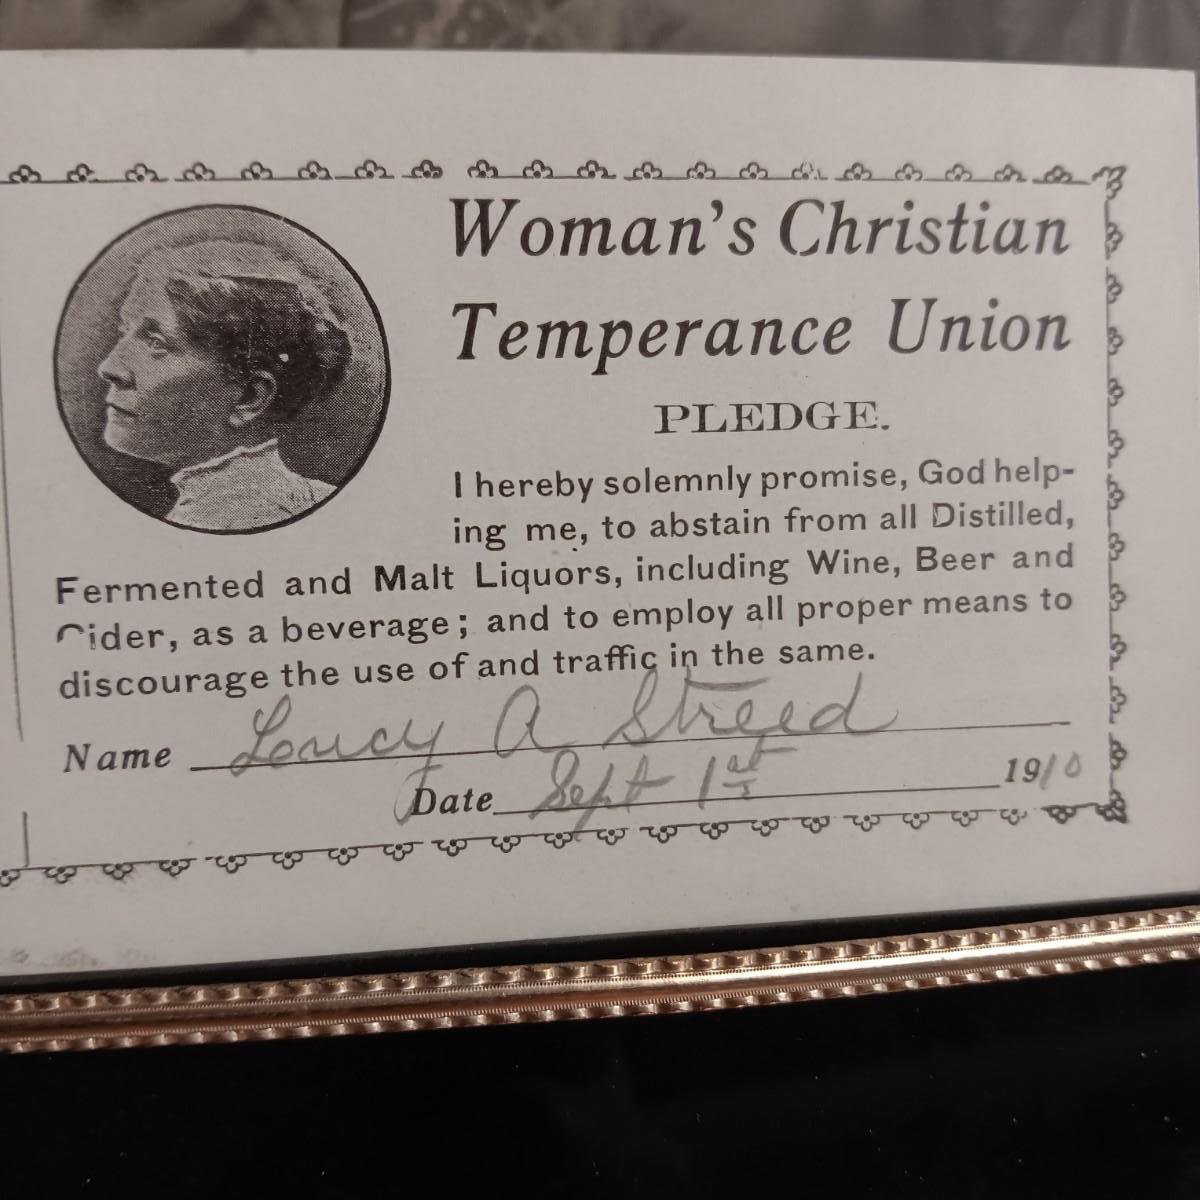 Woman's Christian
Temperance Union
PLEDGE.
I hereby solemnly promise, God help-
ing me, to abstain from all Distilled,
Fermented and Malt Liquors, including Wine, Beer and
Cider, as a beverage; and to employ all proper means to
discourage the use of and traffic in the same.
Name Loucy A Streed
Date Sept 1st 1910